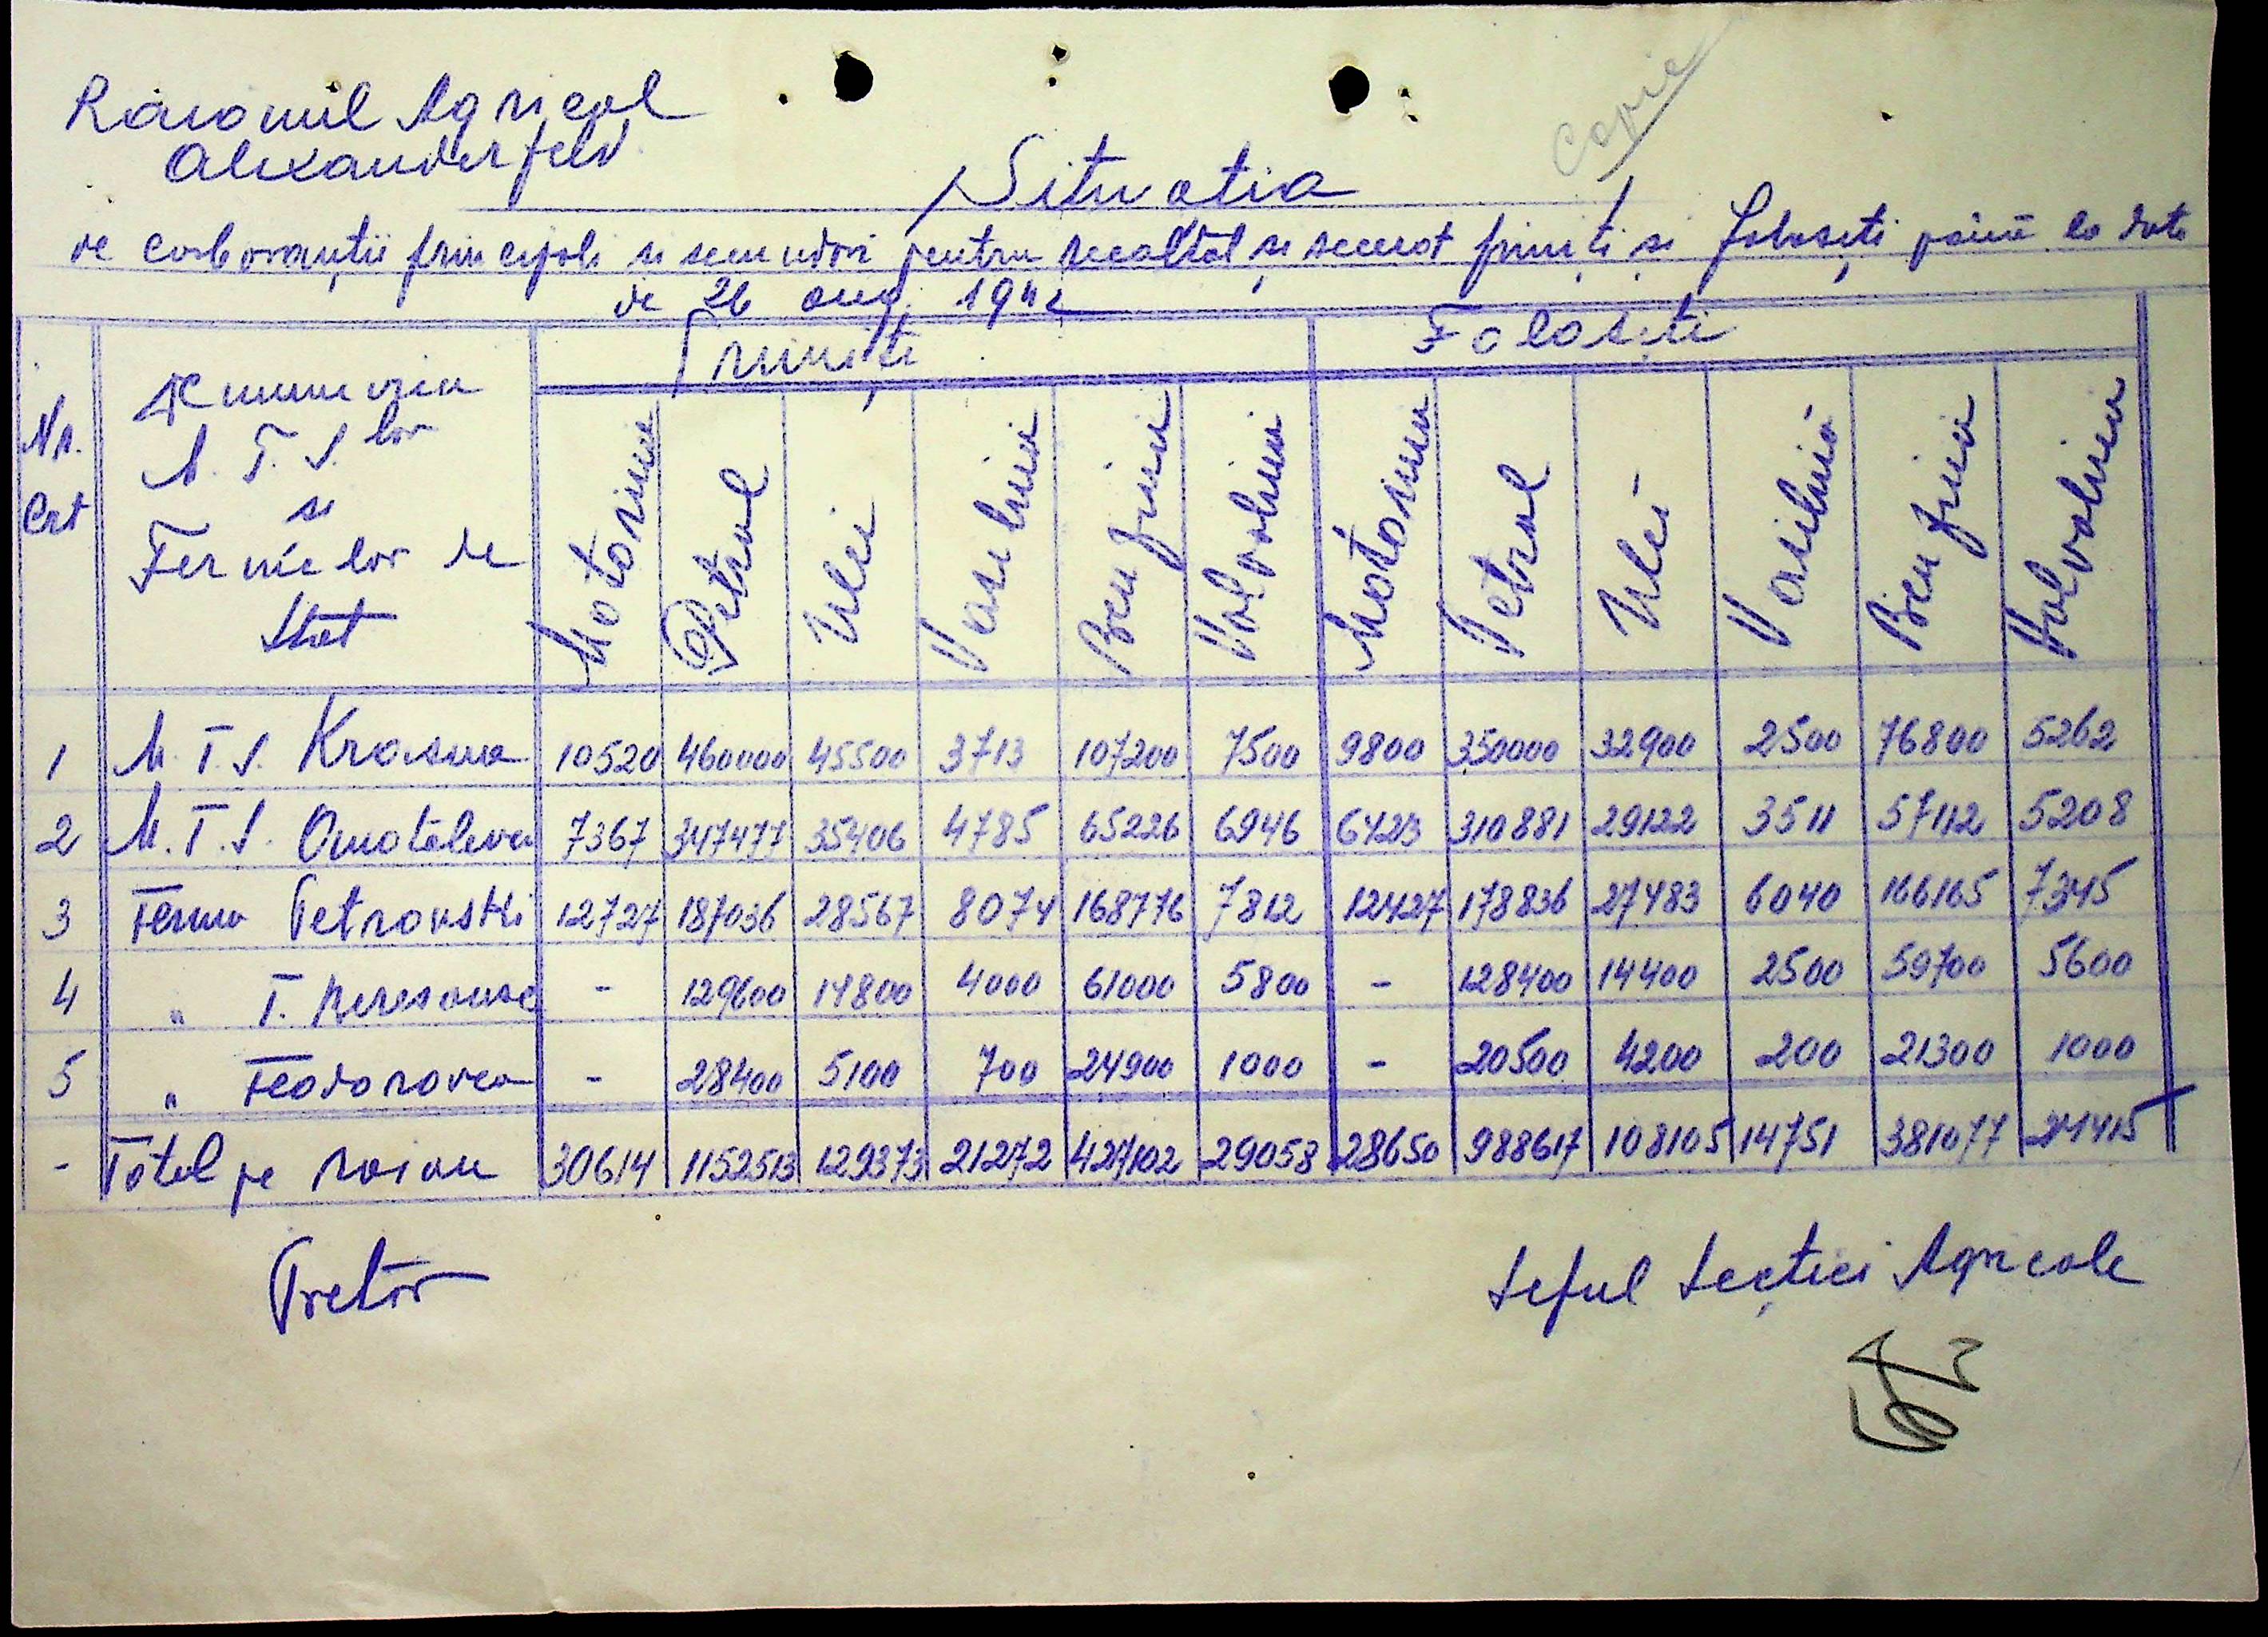 Raionul Agricol
Alexanderfeld
Copie
Situatia
de carburanții principali si secundari pentru recoltat și secerat primiți si folosiți până la data
de 26 aug. 1942
Nr. Crt
Denumirea M. T. S. lor si Fermelor de Stat
Primiți
Folosiți
Motorina Petrol Ulei Vaselina Benzina Valvolina Motorina Petrol Ulei Vaselină Benzina Valvolina
1 M. T. S. Krasna 10520 460000 45500 3713 107200 7500 9800 350000 32900 2500 76800 5262
2 M. T. S. 7367 347477 35406 4785 65226 6946 6423 310881 29122 3511 57112 5208
3 Ferma Petrovski 12727 187036 28567 8074 168776 7812 12427 178836 27483 6040 166165 7345
4 " T. - 129600 14800 4000 61000 5800 - 128400 14400 2500 59700 5600
5 " Feodorovca - 28400 5100 700 24900 1000 - 20500 4200 200 21300 1000
- Total pe raion 30614 1152513 129373 21272 427102 29058 28650 988617 108105 14751 381077 24415
Pretor
Seful Secției Agricole